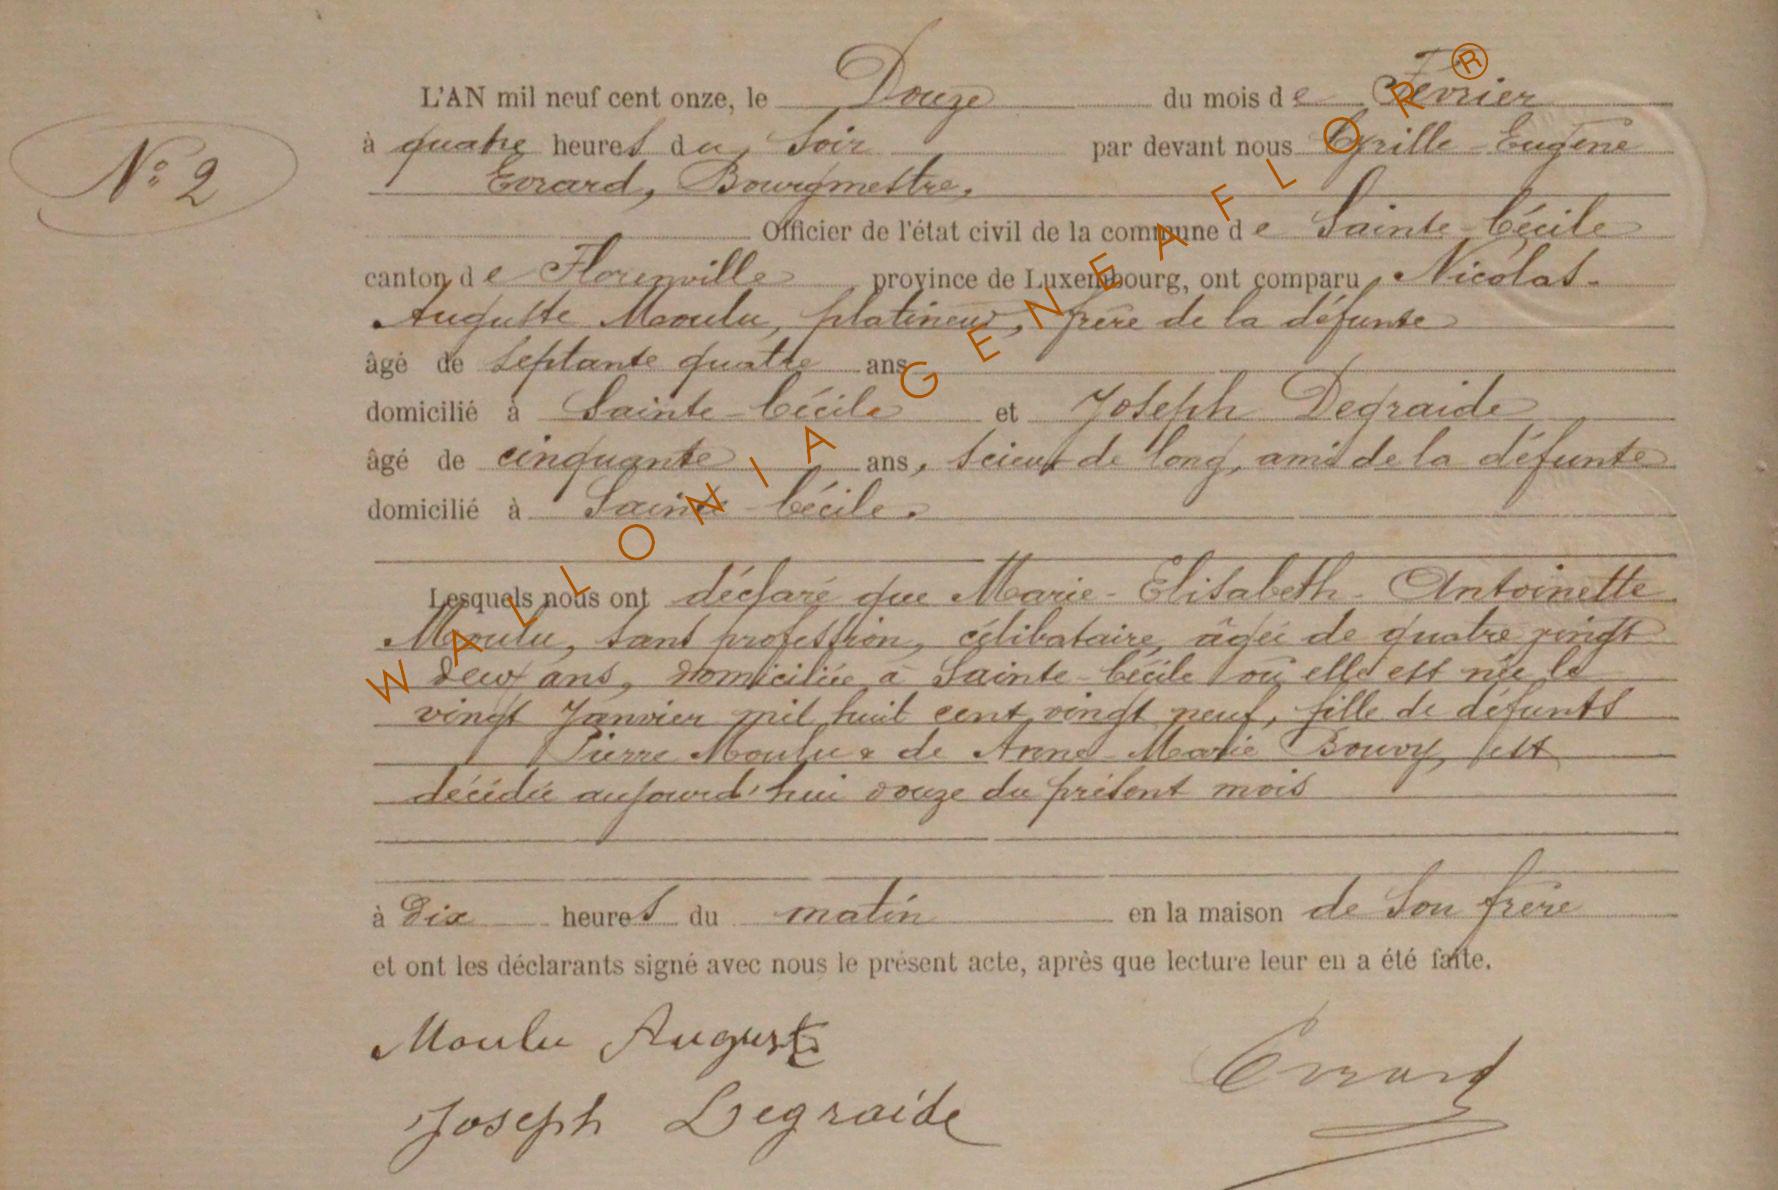 N° 2
L'AN mil neuf cent onze, le Douze du mois de Février
à quatre heures du soir par devant nous Cyrille-Eugène
Evrard, Bourgmestre,
Officier de l'état civil de la commune de Sainte-Cécile
canton de Florenville province de Luxembourg, ont comparu, Nicolas-
Auguste Moulu, platineur, frère de la défunte
âgé de septante quatre ans
domicilié à Sainte-Cécile et Joseph Degraide
âgé de cinquante ans, scieur de long, ami de la défunte
domicilié à Sainte-Cécile.
Lesquels nous ont déclaré que Marie-Elisabeth-Antoinette
Moulu, sans profession, célibataire, âgée de quatre vingt
deux ans, domiciliée à Sainte-Cécile où elle est née le
vingt Janvier mil huit cent vingt neuf, fille de défunts
Pierre Moulu & de Anne-Marie Bouvy, est
décédée aujourd'hui douze du présent mois
à Dix heures du matin en la maison de son frère
et ont les déclarants signé avec nous le présent acte, après que lecture leur en a été faite.
Moulu Auguste
Evrard
Joseph Degraide
WALLONIA GENEAFLOR®